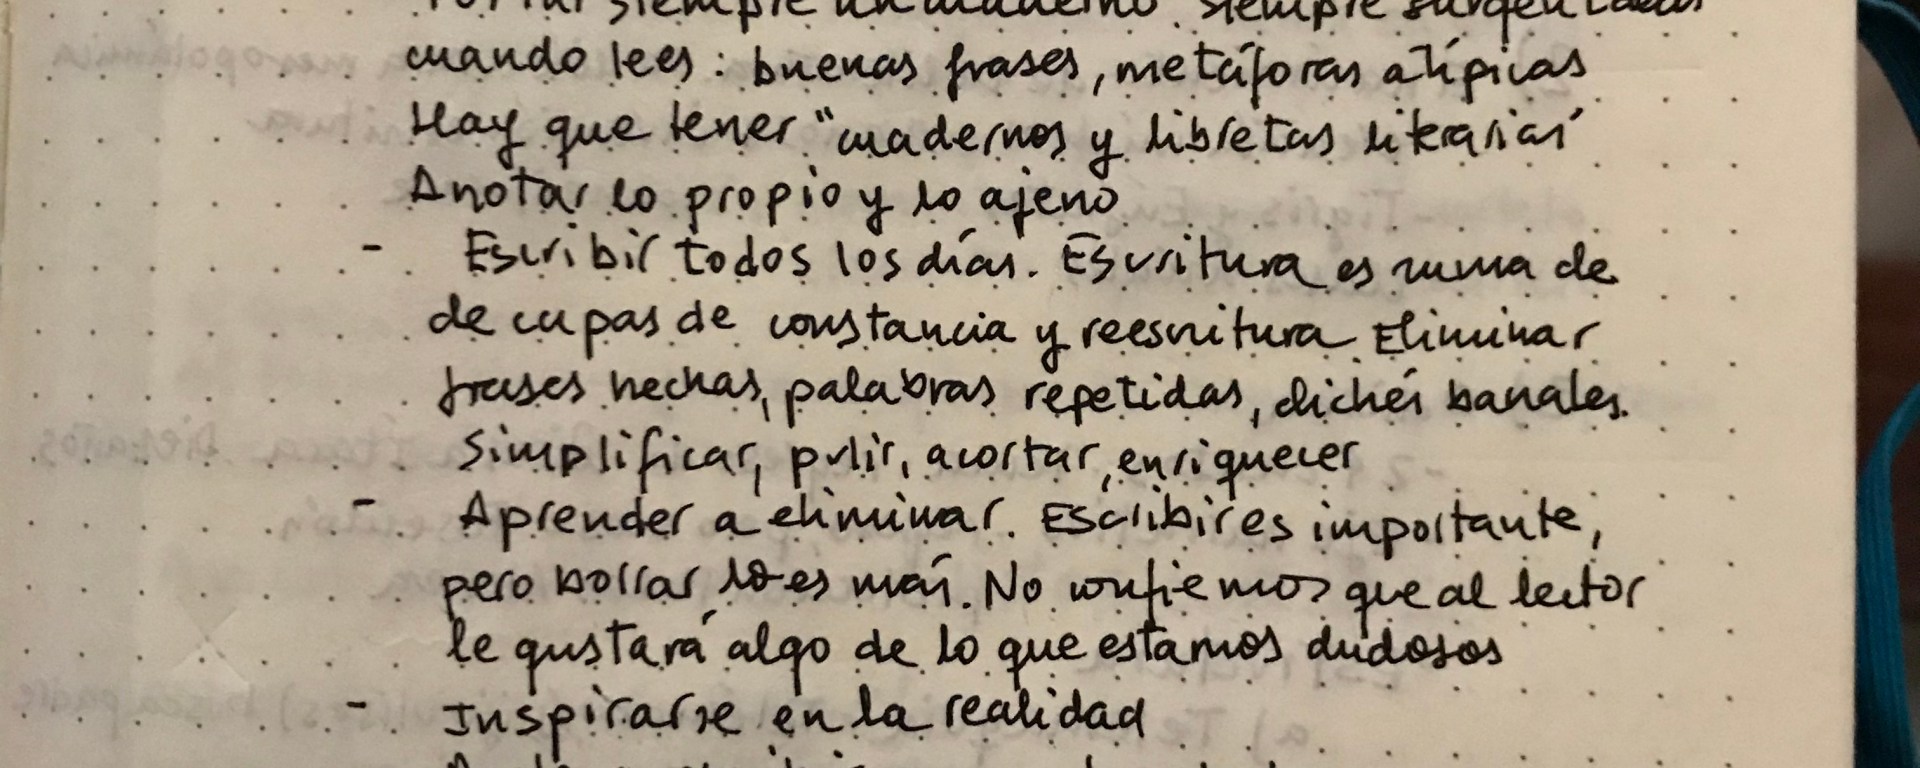 siempre un cuaderno. Siempre surgen ideas
cuando lees: buenas frases, metáforas atípicas
Hay que tener "cuadernos y libretas literarias"
Anotar lo propio y lo ajeno
- Escribir todos los días. Escritura es suma de
de capas de constancia y reescritura Eliminar
frases hechas, palabras repetidas, clichés banales.
Simplificar, pulir, acortar, enriquecer
- Aprender a eliminar. Escribir es importante,
pero borrar lo es más. No confiemos que al lector
le gustará algo de lo que estamos dudosos
- Inspirarse en la realidad